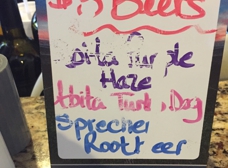 $5 Beers
Abita Purple
Haze
Abita Turb, Dog
Sprecher
Root eer